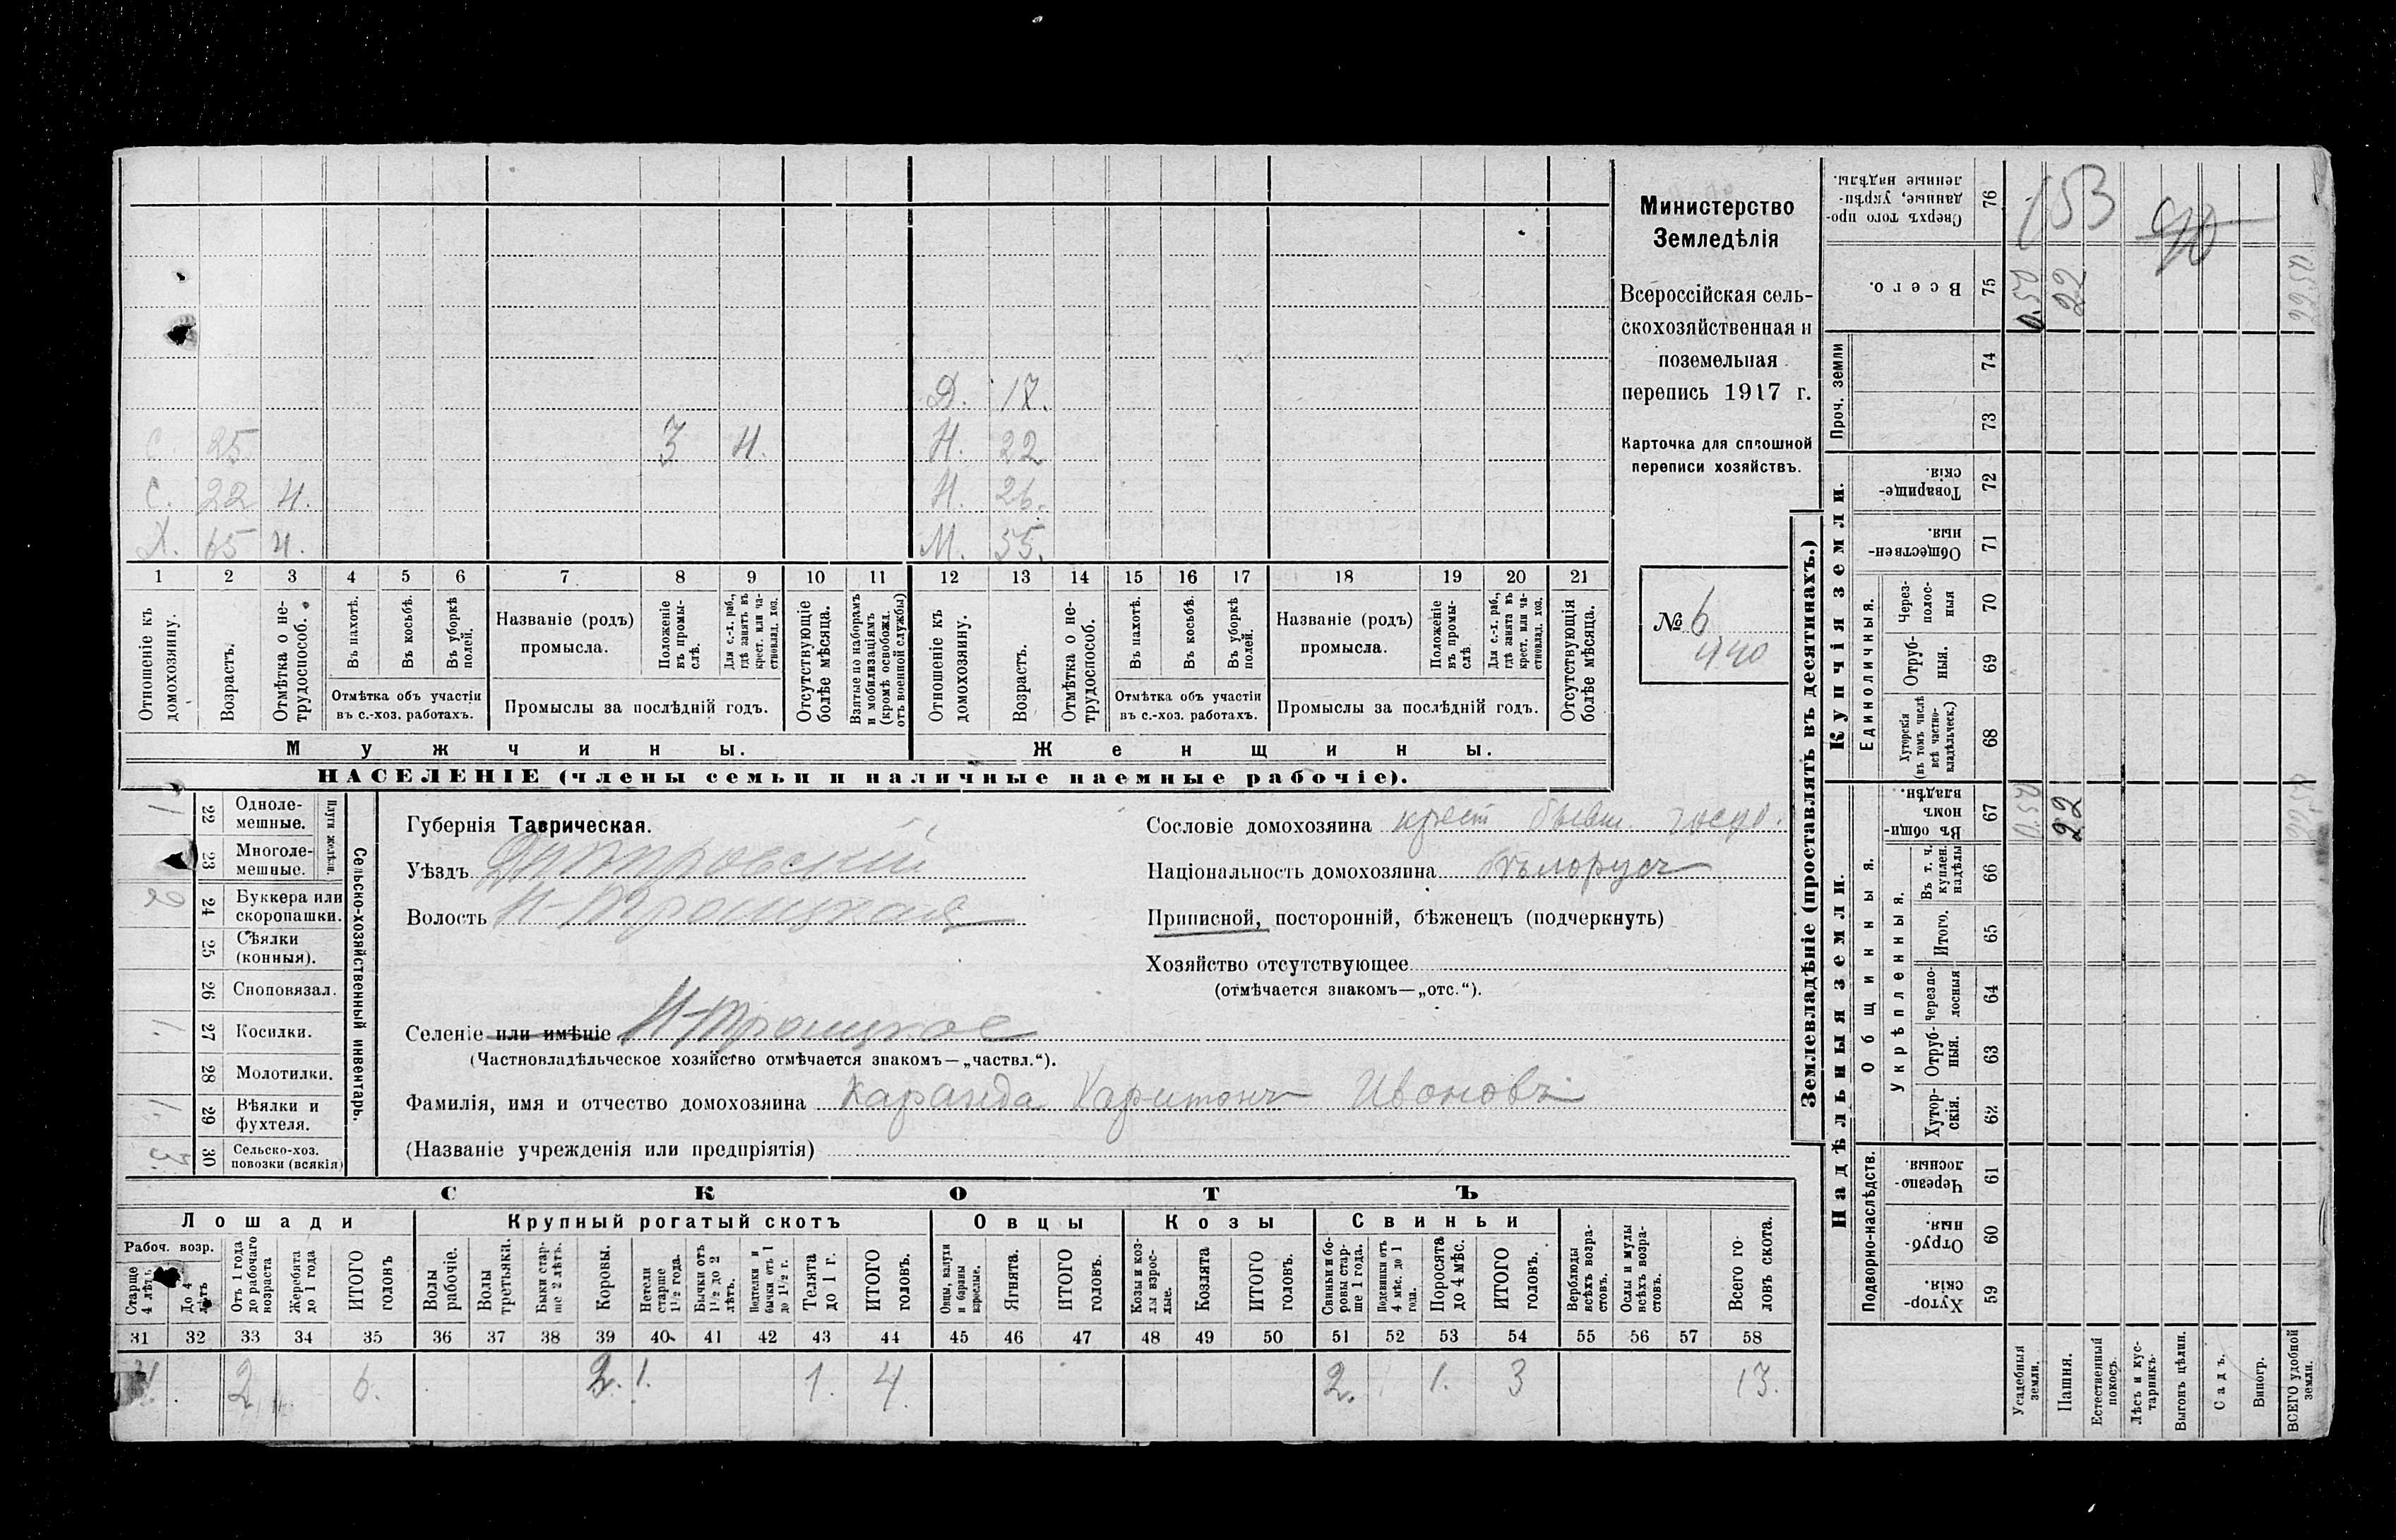 Министерство
Земледѣлія
Всероссійская сель-
скохозяйственная и
поземельная
перепись 1917 г.
Карточка для сплошной
переписи хозяйствъ.
№ 6
440
Д. 17.
С. 25 3 Н. Н. 22
С. 22 Н. Н. 26.
Х. 65 Н. М. 55.
1 2 3 4 5 6 7 8 9 10 11 12 13 14 15 16 17 18 19 20 21
Отношеніе къ домохозяину.
Возрастъ.
Отмѣтка о не-трудоспособ.
Въ пахотѣ.
Въ косьбѣ.
Въ уборкѣ полей.
Отмѣтка объ участіи
въ с.-хоз. работахъ.
Названіе (родъ)
промысла.
Положеніе въ промы-слѣ.
Для с.-х. раб., гдѣ занятъ въ крест. или ча-стновлад. хоз.
Промыслы за послѣдній годъ.
Отсутствующіе болѣе мѣсяца.
Взятые по наборамъ и мобилизаціямъ (кромѣ освобожд. отъ военной службы)
Отношеніе къ домохозяину.
Возрастъ.
Отмѣтка о не-трудоспособ.
Въ пахотѣ.
Въ косьбѣ.
Въ уборкѣ полей.
Отмѣтка объ участіи
въ с.-хоз. работахъ.
Названіе (родъ)
промысла.
Положеніе въ промы-слѣ.
Для с.-х. раб., гдѣ занята въ крест. или ча-стновлад. хоз.
Промыслы за послѣдній годъ.
Отсутствующія болѣе мѣсяца.
Мужчины.
Женщины.
НАСЕЛЕНІЕ (члены семьи и наличные наемные рабочіе).
Сельско-хозяйственный инвентарь.
Плуги желѣзн.
1 22 Одноле-мешные.
23 Многоле-мешные.
2 24 Буккера или скоропашки.
25 Сѣялки (конныя).
26 Сноповязал.
1. 27 Косилки.
28 Молотилки.
1. 29 Вѣялки и фухтеля.
3. 30 Сельско-хоз. повозки (всякія)
Губернія Таврическая.
Уѣздъ Днѣпровскій
Волость Н-Троицкая
Сословіе домохозяина крест бывш госуд.
Національность домохозяина бѣлорусъ
Приписной, посторонній, бѣженецъ (подчеркнуть)
Хозяйство отсутствующее
(отмѣчается знакомъ—„отс.“).
Селеніе или имѣніе Н-Троицкое
(Частновладѣльческое хозяйство отмѣчается знакомъ—„частвл.“).
Фамилія, имя и отчество домохозяина Каранда Харитонъ Ивановъ
(Названіе учрежденія или предпріятія)
СКОТЪ
Лошади
Крупный рогатый скотъ
Овцы
Козы
Свиньи
Рабоч. возр.
Старше 4 лѣтъ
До 4 лѣтъ
Отъ 1 года до рабочаго возраста
Жеребята до 1 года
ИТОГО головъ
Волы рабочіе.
Волы третьяки.
Быки стар-ше 2 лѣтъ.
Коровы.
Нетели старше 1½ года.
Бычки отъ 1½ до 2 лѣтъ.
Подтелки и бычки отъ 1 до 1½ г.
Телята до 1 г.
ИТОГО головъ.
Овцы, валухи и бараны взрослые.
Ягнята.
ИТОГО головъ.
Козы и коз-лы взрос-лые.
Козлята
ИТОГО головъ.
Свиньи и бо-ровы стар-ше 1 года.
Подсвинки отъ 4 мѣс. до 1 года.
Поросята до 4 мѣс.
ИТОГО головъ.
Верблюды всѣхъ возра-стовъ.
Ослы и мулы всѣхъ возра-стовъ.
Всего го-ловъ скота.
31 32 33 34 35 36 37 38 39 40 41 42 43 44 45 46 47 48 49 50 51 52 53 54 55 56 57 58
4. 2 6. 2. 1. 1. 4 2. 1. 3 13.
Землевладѣніе (проставлять въ десятинахъ.)
Надѣльныя земли.
Купчія земли.
Проч. земли
Подворно-наслѣдств.
Общинныя.
Укрѣпленныя.
Единоличныя.
Сверхъ того про-данные, укрѣп-ленные надѣлы. 76
Всего. 75 0.50 22
74
73
Товарище-скія. 72
Обществен-ныя. 71
Через-полос-ныя 70
Отруб-ныя. 69
Хуторскія (въ томъ числѣ всѣ частно-владѣльческ.) 68
Въ общи-номъ владѣн. 67 050 22
Въ т. ч. куплен. надѣлы 66
Итого. 65
Черезпо-лосныя 64
Отруб-ныя. 63
Хутор-скія. 62
Черезпо-лосныя. 61
Отруб-ныя. 60
Хутор-скія. 59
Усадебныя земли.
Пашня.
Естественный покосъ.
Лѣсъ и кус-тарникъ.
Выгонъ цѣлин.
Садъ.
Виногр.
ВСЕГО удобной земли.
153